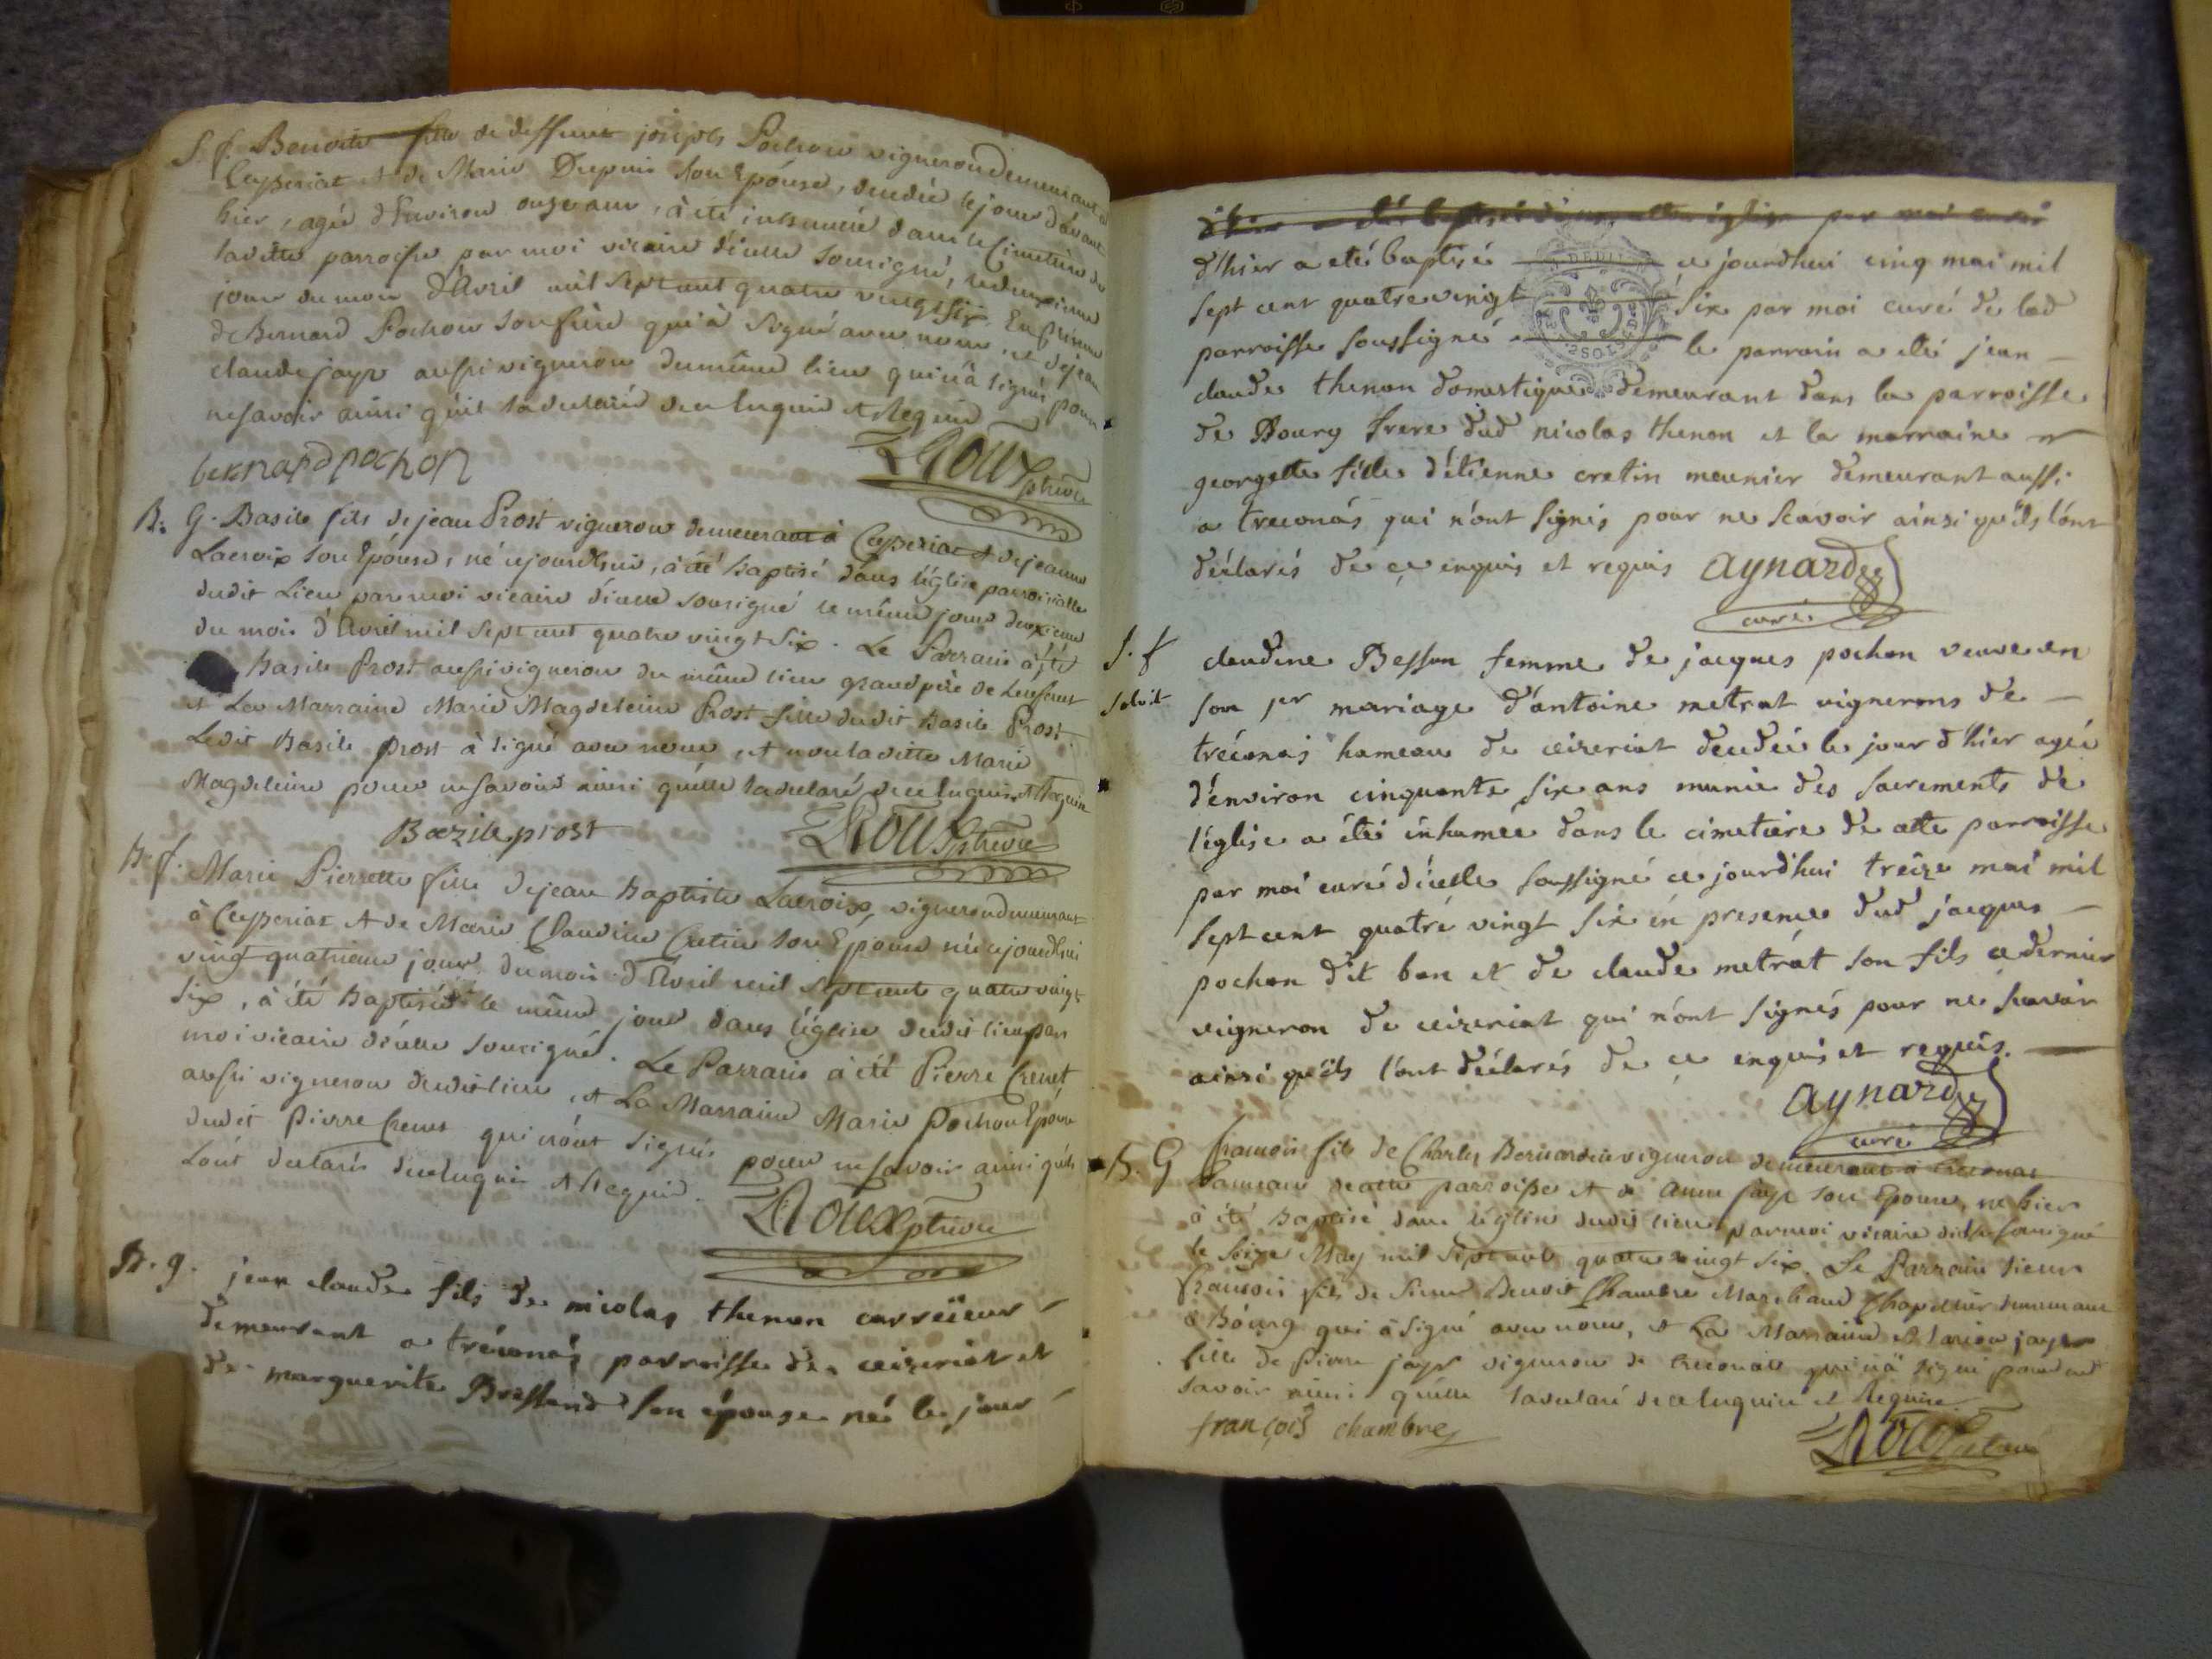 S. f. Benoite fille de deffunt joseph Pochon vigneron demeurant à
Ceyzeriat et de Marie Drepuis son Epouse, decedée le jour d'avant
hier, agée d'Environ onze ans, à été inhumée dans le Cimetiere de
laditte parroisse par moi vicaire d'icelle sousigné, le deuxieme
jour du mois d'Avril mil sept cent quatre vingt six. En présence
de Bernard Pochon son frère qui à signé avec nous, et de jean
claude jayr aussi vigneron du même lieu qui n'à signé pour
ne savoir ainsi qu'il l'a declaré de ce enquis et Requis
bernard pochon Roux ptre vic
B. G. Basile fils de jean Prost vigneron demeurant à Ceyzeriat et de jeanne
Lacroix son Epouse, né cejourdhui, à été baptisé dans l'église parroissialle
dudit Lieu par moi vicaire d'icelle sousigné le même jour deuxieme
du mois d'Avril mil sept cent quatre vingt six. Le Parrain à été
Basile Prost aussi vigneron du même lieu grand père de L'enfant
et La Marraine Marie Magdeleine Prost fille dudit Basile Prost.
Ledit Basile prost à signé avec nous, et non laditte Marie
Magdeleine pour ne savoir ainsi qu'elle l'a declaré de ce enquise et Requise
Bazile prost Roux ptre vic
B. f. Marie Pierrette fille de jean baptiste Lacroix, vigneron demeurant
à Ceyzeriat et de Marie Claudine Cretin son Epouse née cejourdhui
vingt quatrieme jour du mois d'Avril mil sept cent quatre vingt
six, à été baptisée le même jour dans l'église dudit lieu par
moi vicaire d'icelle sousigné. Le Parrain à été Pierre Crenet
aussi vigneron dudit lieu, et La Marraine Marie Pochon Epouse
dudit Pierre Crenet qui n'ont signés pour ne savoir ainsi qu'ils
L'ont declarés de ce enquis et Requis.
Roux ptre vic
B. g. jean claude fils de nicolas thenon carreieur
demeurant a tréconas parroisse de ceizeriat et
de marguerite Bressand son épouse né le jour
d'hier a été baptisé dans cette église par moi curé
d'hier a eté baptisé ce jourdhui cinq mai mil
sept cent quatre vingt six par moi curé de lad
parroisse soussigné le parrain a eté jean
claude thenon domestique demeurant dans la parroisse
de Bourg frere dud nicolas thenon et la marraine
georgette fille d'étienne cretin meunier demeurant aussi
a treconas qui n'ont signés pour ne scavoir ainsi qu'ils l'ont
déclarés de ce enquis et requis aynard
curé
S. f claudine Besson femme de jacques pochon veuve en
solvit son per mariage d'antoine metrat vignerons de
tréconas hameau de ceizeriat decedée le jour d'hier agée
d'environ cinquante six ans munie des sacrements de
l'église a été inhumée dans le cimetiere de cette parroisse
par moi curé d'icelle soussigné ce jourdhui treize mai mil
sept cent quatre vingt six en presence dud jacques
pochon dit bon et de claude metrat son fils ce dernier
vigneron de ceizeriat qui n'ont signés pour ne scavoir
ainsi qu'ils l'ont déclarés de ce enquis et requis.
aynard
curé
B. G françois fils de Charles Bernardin vigneron demeurant à treconas
hameau de cette parroisse et de Anne jayr son Epouse, né hier
à été baptisé dans l'église dudit lieu par moi vicaire d'icelle sousigné
le seize May mil sept cent quatre vingt six. Le Parrain sieur
françois fils de sieur Benoit Chambre Marchand Chapellier demeurant
à Bourg qui à signé avec nous, et La Marraine Marion jayr
fille de Pierre jayr vigneron de treconas qui n'à signé pour ne
savoir ainsi qu'elle l'a declaré de ce enquise et Requise.
françois chambre Roux ptre vic